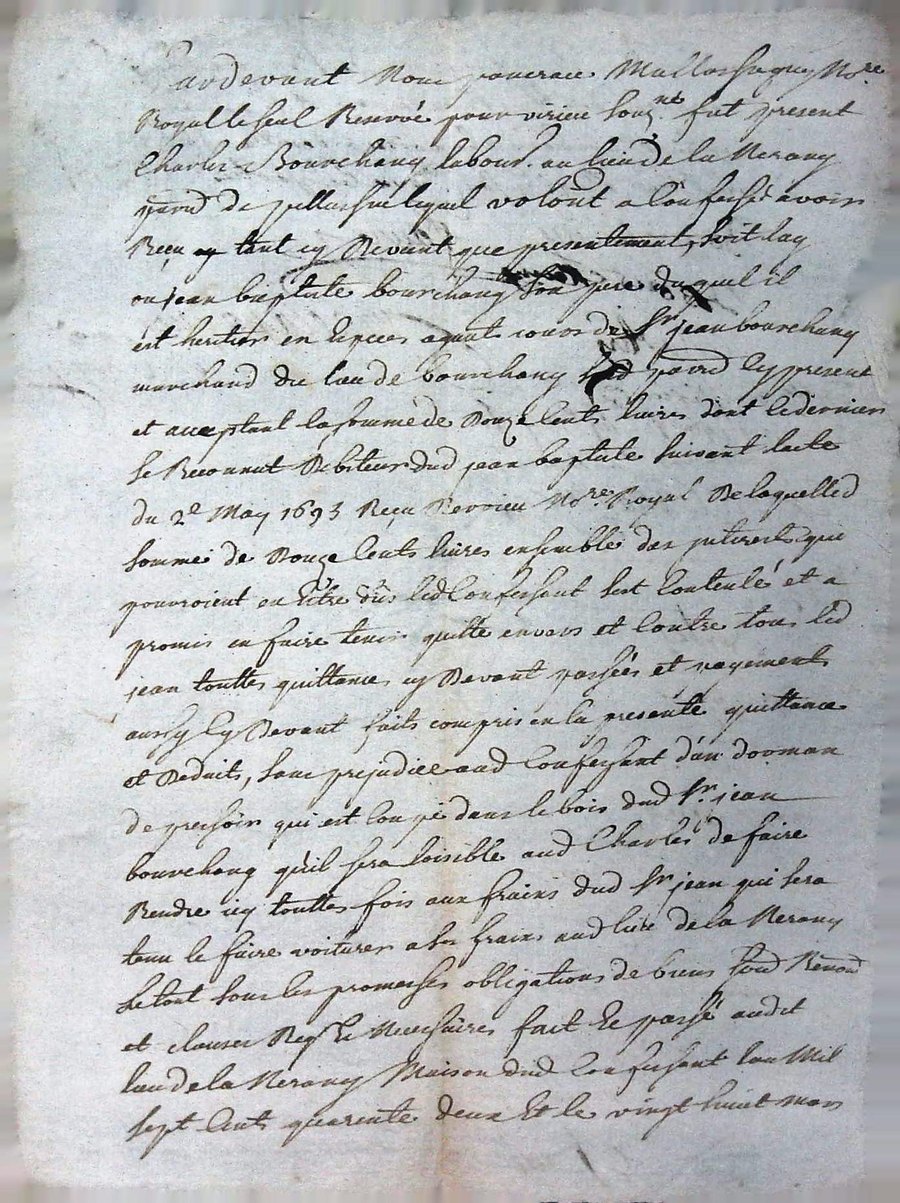 Pardevant Nous pancrace Mallassagny No.re
Royal le seul Reservé pour virieu souz.né fut present
Charles Bourchany labour. au lieu de la Nerany
parr. de pellussié lequel volont a Confessé avoir
Reçu tant cy Devant que presentement, soit luy
ou jean baptiste bourchany son pere duquel il
est heritier en Especes ayant cours de Sr jean bourchany
marchand du lieu de bourchany susd parr cy present
et acceptant la somme de Douze Cents livres dont le dernier
se Reconnut Debiteur dud jean baptiste suivant l'acte
du 2e May 1693 Reçu Nore Royal De laquelle d
somme de Douze Cents livres ensemble des interests qui
pouvoient en Etre dûs led Confessant sest Contenté et a
promis en faire tenir quitte envers et Contre tous led
jean touttes quittances cy Devant passées et payements
aussy Cy Devant faits compris en la presente quittance
et Deduits, sans prejudice aud Confessant d'un
de pressoir qui est Coupé dans le bois dud Sr jean
bourchany qu'il sera loisible aud Charles de faire
Rendre icy touttes fois aux fraix dud Sr jean qui sera
tenu le faire voiturer a ses fraix aud lieu de la Nerany
le tout sous les promesses obligations de biens soud Renond
et clauses Req. Et Necessaires fait Et passé audit
lieu de la Nerany Maison dud Confessant l'an Mil
sept Cents quarente deux Et le vingt huit mars